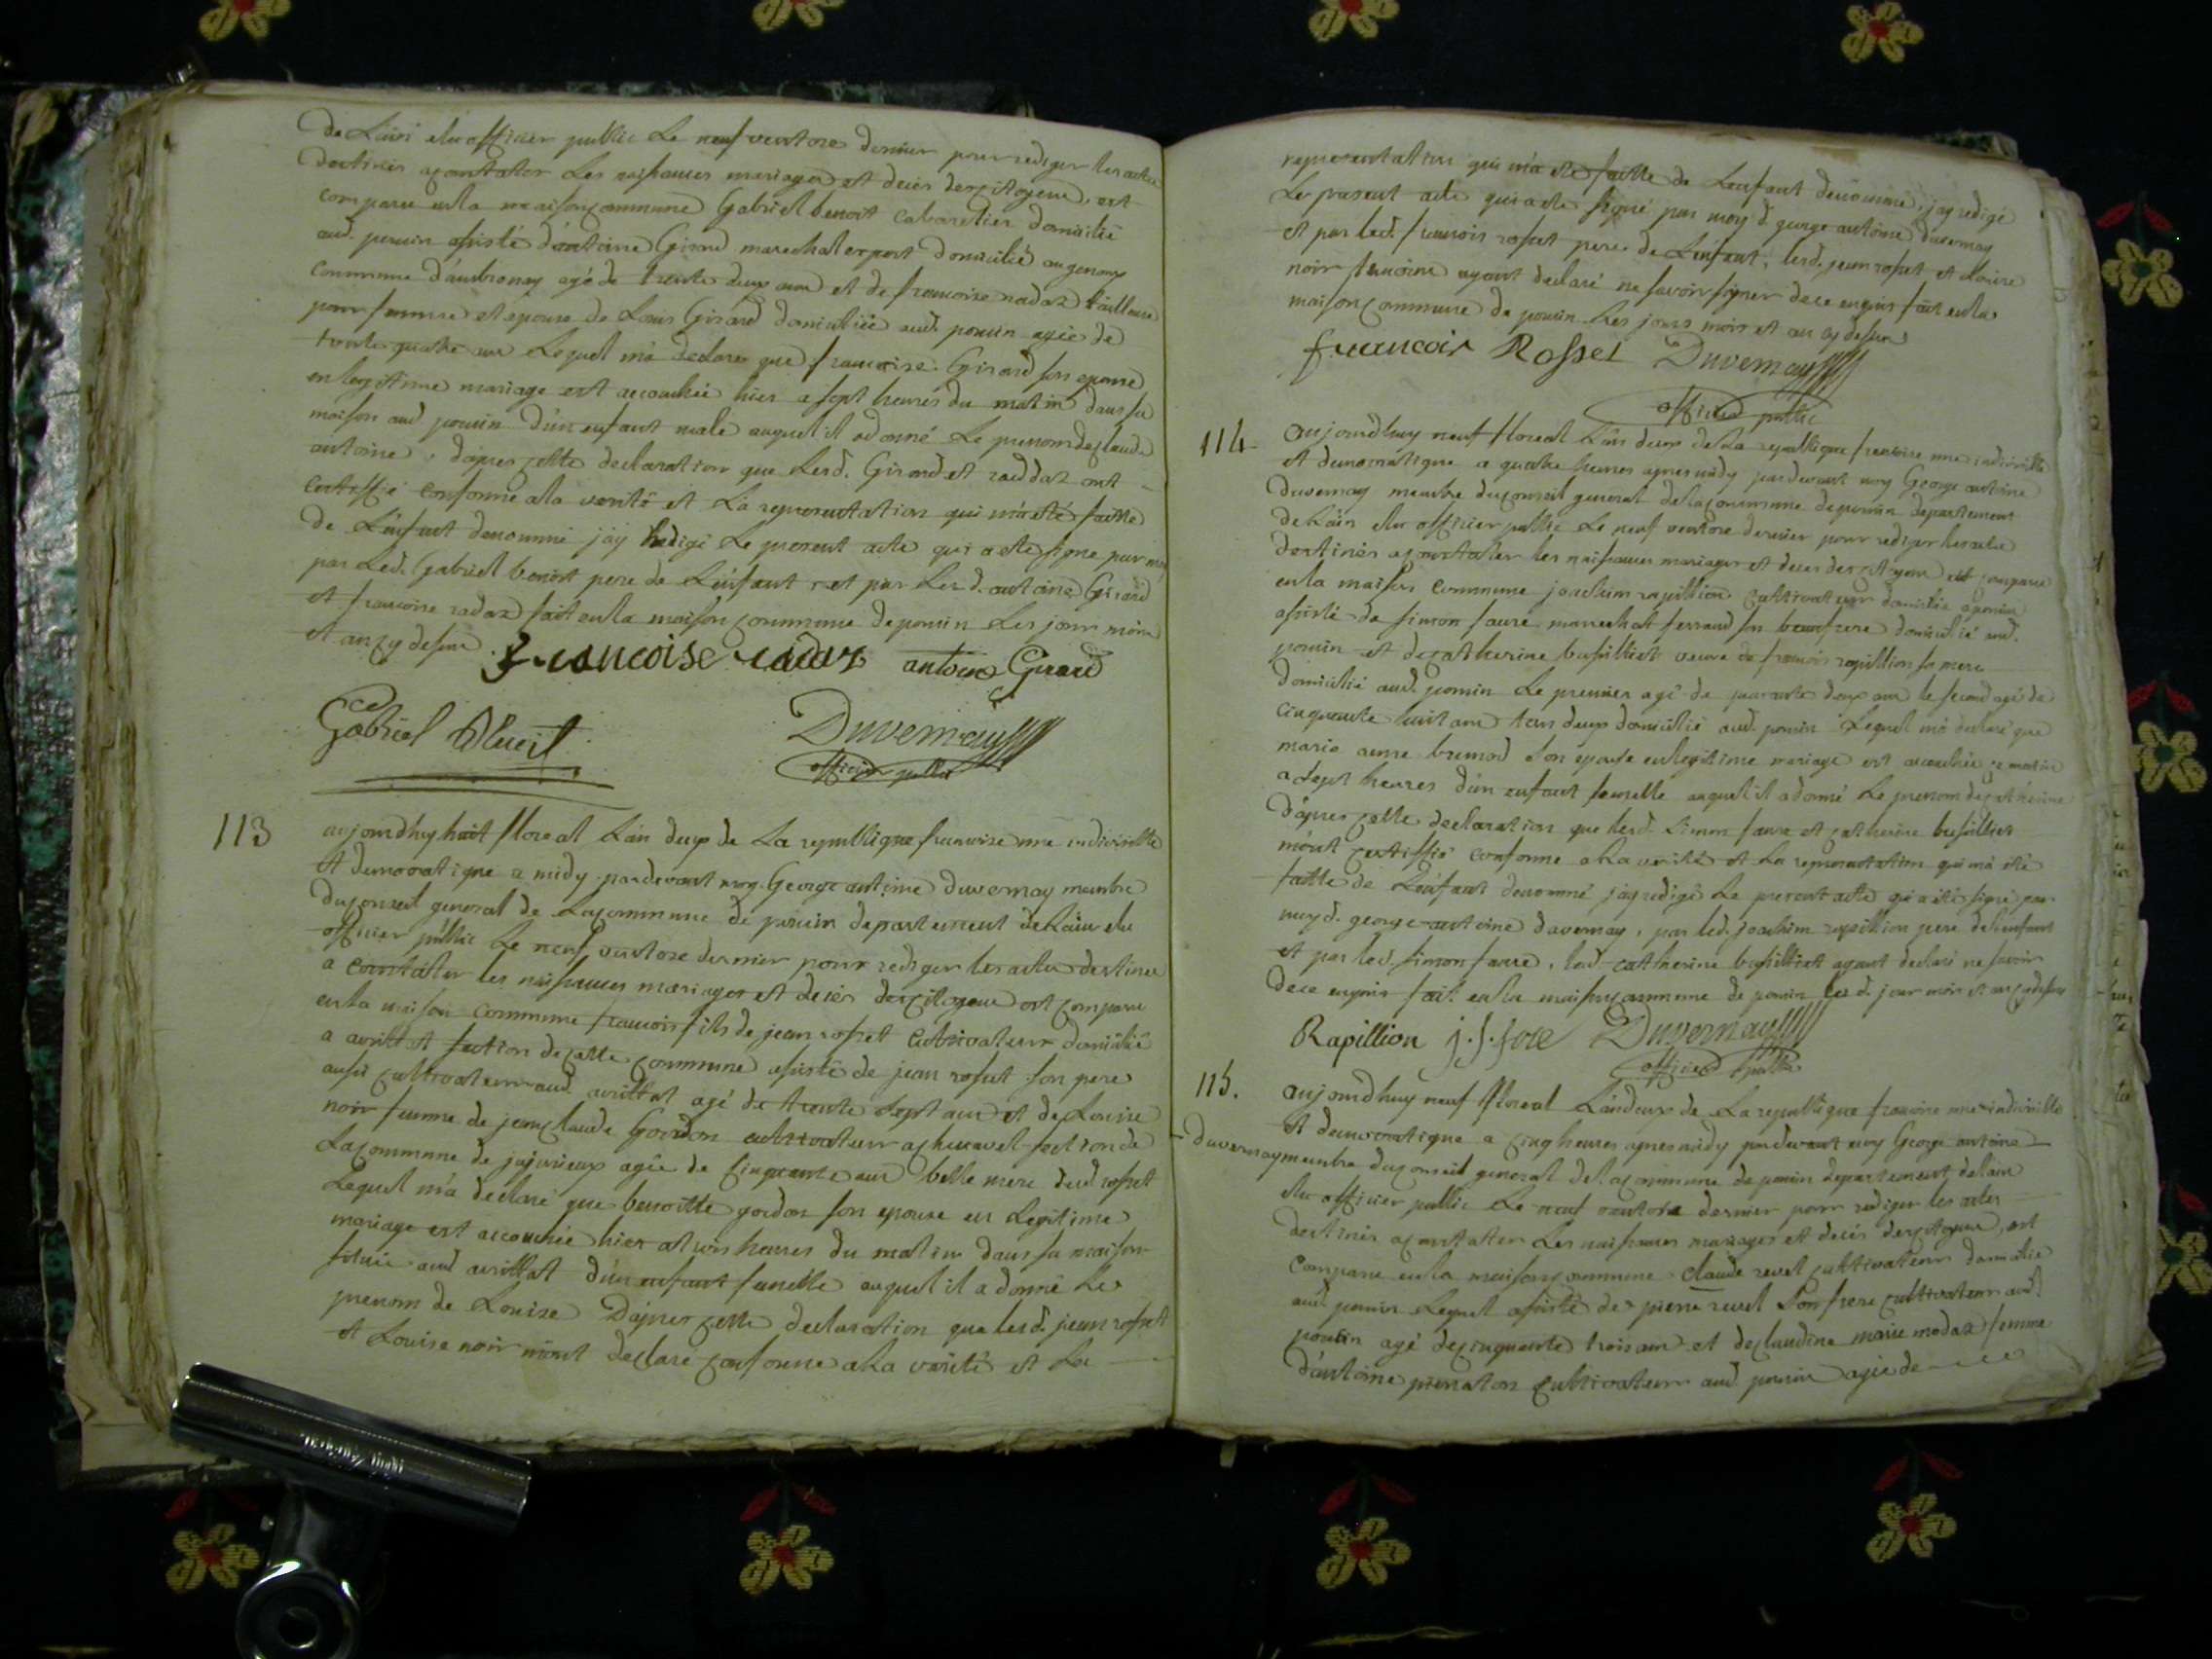 de Lain elu officier public Le neuf ventose dernier pour rediger les actes
destinés a constater Les naissances mariages et décés des citoyens, est
comparu en la maison commune Gabriel benoit cabaretier domicilié
aud. poncin assisté d'antoine Girard marechal expert domicilié au genoux
commune d'ambronay agé de trente deux ans et de francoise radaz tailleuse
pour femme et epouse de Louis Girard domiciliée aud. poncin agée de
trente quatre ans Lequel m'a declaré que francoise Girard son epouse
en legitime mariage est accouchée hier a sept heures du matin dans sa
maison aud poncin d'un enfant male auquel il a donné Le prenom de claude
antoine, d'apres cette declaration que Lesd. Girard et raddaz ont
certiffié conforme a la verité et La representation qui m'a eté faitte
de L'enfant denommé j'ay Redigé Le present acte qui a eté signé par moy
par Led. Gabriel benoit pere de L'enfant et par Les d. antoine Girard
et francoise radaz fait en la maison commune de poncin Les jour mois
et an cy dessus
francoise radaz antoine Girard
Gabriel Duvernay
officier public
113 aujourdhuy huit floreal L'an deux de La republique francoise une indivisible
et democratique a midy pardevant moy George antoine duvernay membre
du conseil general de La commune de poncin departement de Lain elu
officier public Le neuf ventose dernier pour rediger les actes destinés
a constater les naissances mariages et decés des citoyens est comparu
en la maison commune francois fils de jean rosset cultivateur domicilié
a avrillat section de cette commune assisté de jean rosset son pere
aussi cultivateur aud avrillat agé de trente sept ans et de Louise
noir femme de jean claude Gordon cultivateur a chenavel section de
La commune de jujurieux agée de cinquante ans belle mere dud rosset
Lequel m'a declaré que benoitte gordon son epouse en Legitime
mariage est accouchée hier a trois heures du matin dans sa maison
située aud avrillat d'un enfant femelle auquel il a donné Le
prenom de Louise D'apres cette declaration que lesd. jean rosset
et Louise noir m'ont declaré conforme a La verité et La
representation qui m'a eté faitte de Lenfant denommé, j'ay redigé
Le present acte qui a eté signé par moy d. george antoine duvernay
et par led. francois rosset pere de L'enfant, lesd. jean rosset et Louise
noir ayant declaré ne savoir signer de ce enquis fait en la
maison commune de poncin Les jours mois et an cy dessus
francois Rosset Duvernay
officier public
114 aujourdhuy neuf floreal L'an deux de La republique francoise une indivisible
et democratique a quatre heures apres midy pardevant moy George antoine
Duvernay membre du conseil general de la commune de poncin departement
de Lain elu officier public Le neuf ventose dernier pour rediger les actes
destinés a constater les naissances mariages et decés des citoyens est comparu
en la maison commune joachim rapillion cultivateur domicilié a poncin
assisté de simon faure marechal ferrand son beaufrere domicilié aud.
poncin et de catherine bussilliet veuve de francois rapillion sa mere
domicilié aud. poncin Le premier agé de quarante deux ans le second agé de
cinquante huit ans tous deux domicilié aud. poncin Lequel m'a declaré que
marie anne brunod son epouse en legitime mariage est accouchée ce matin
a sept heures d'un enfant femelle auquel il a donné Le prenom de catherine
D'apres cette declaration que lesd. simon faure et catherine bussilliet
m'ont certiffié conforme a La verité et La representation qui m'a eté
faitte de L'enfant denommé j'ay redigé Le present acte qui a eté signé par
moy d. george antoine duvernay, par led. joachim rapillion pere de L'enfant
et par led. simon faure, lad. catherine bussilliet ayant declaré ne savoir
de ce enquis fait en la maison commune de poncin les d. jour mois et an cy dessus
Rapillion j.s. fore Duvernay
officier public
115. aujourdhuy neuf floreal L'an deux de La republique francoise une indivisible
et democratique a cinq heures apres midy pardevant moy George antoine
- duvernay membre du conseil general de la commune de poncin departement de lain
elu officier public Le neuf ventose dernier pour rediger les actes
destinés a constater Les naissances mariages et decés des citoyens, est
comparu en la maison commune claude revel cultivateur domicilié
aud. poncin Lequel assisté de pierre revel son frere cultivateur aud.
poncin agé de cinquante trois ans et de claudine marie modaz femme
d'antoine cultivateur aud. poncin agée de